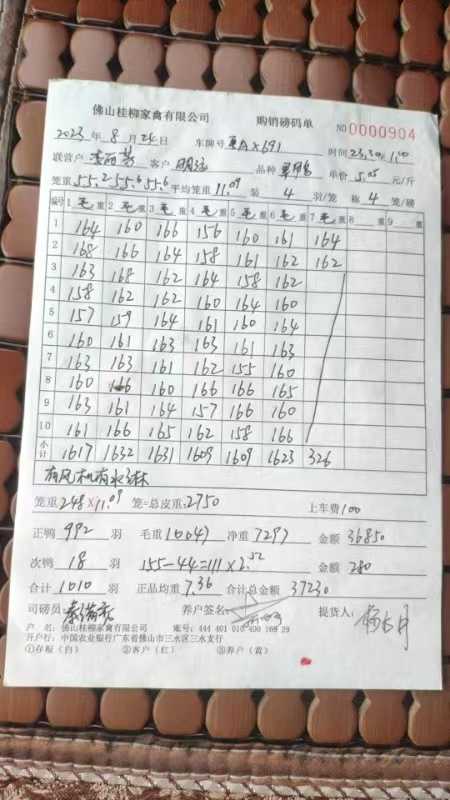 佛山桂柳家禽有限公司 购销磅码单 NO 0000904
2023年 8月 24日 车牌号 A X 691 时间 23.30~1.00
联营户 客户 品种 单价 5.05 元/斤
笼重 55.2 55.6 55.6 平均笼重 11.09 装 4 羽/笼 称 4 笼/磅
编号 1 毛 重 2 毛 重 3 毛 重 4 毛 重 5 毛 重 6 毛 重 7 毛 重 8 重 9 重
1 164 160 166 156 160 161 164
2 168 166 164 158 161 162 162
3 163 168 162 164 158 162
4 158 162 162 160 164 160
5 157 159 164 161 160 164
6 160 161 163 163 161 163
7 163 163 161 162 155 160
8 160 166 160 166 166 165
9 163 161 164 157 166 160
10 161 166 165 162 158 166
小计 1617 1632 1631 1609 1609 1623 326
有风机有水
笼重 248×11.09 笼=总皮重: 2750 上车费 100
正鸭 992 羽 毛重 10047 净重 7297 金额 36850
次鸭 18 羽 155-44=111×2.52 金额 280
合计 1010 羽 正品均重 7.36 合计总金额 37230
司磅员: 养户签名: 提货人:
户 名: 佛山桂柳家禽有限公司 账号: 444 401 010 400 169 29
开户行: 中国农业银行广东省佛山市三水区三水支行
①存根（白） ②客户（红） ③养户（黄）